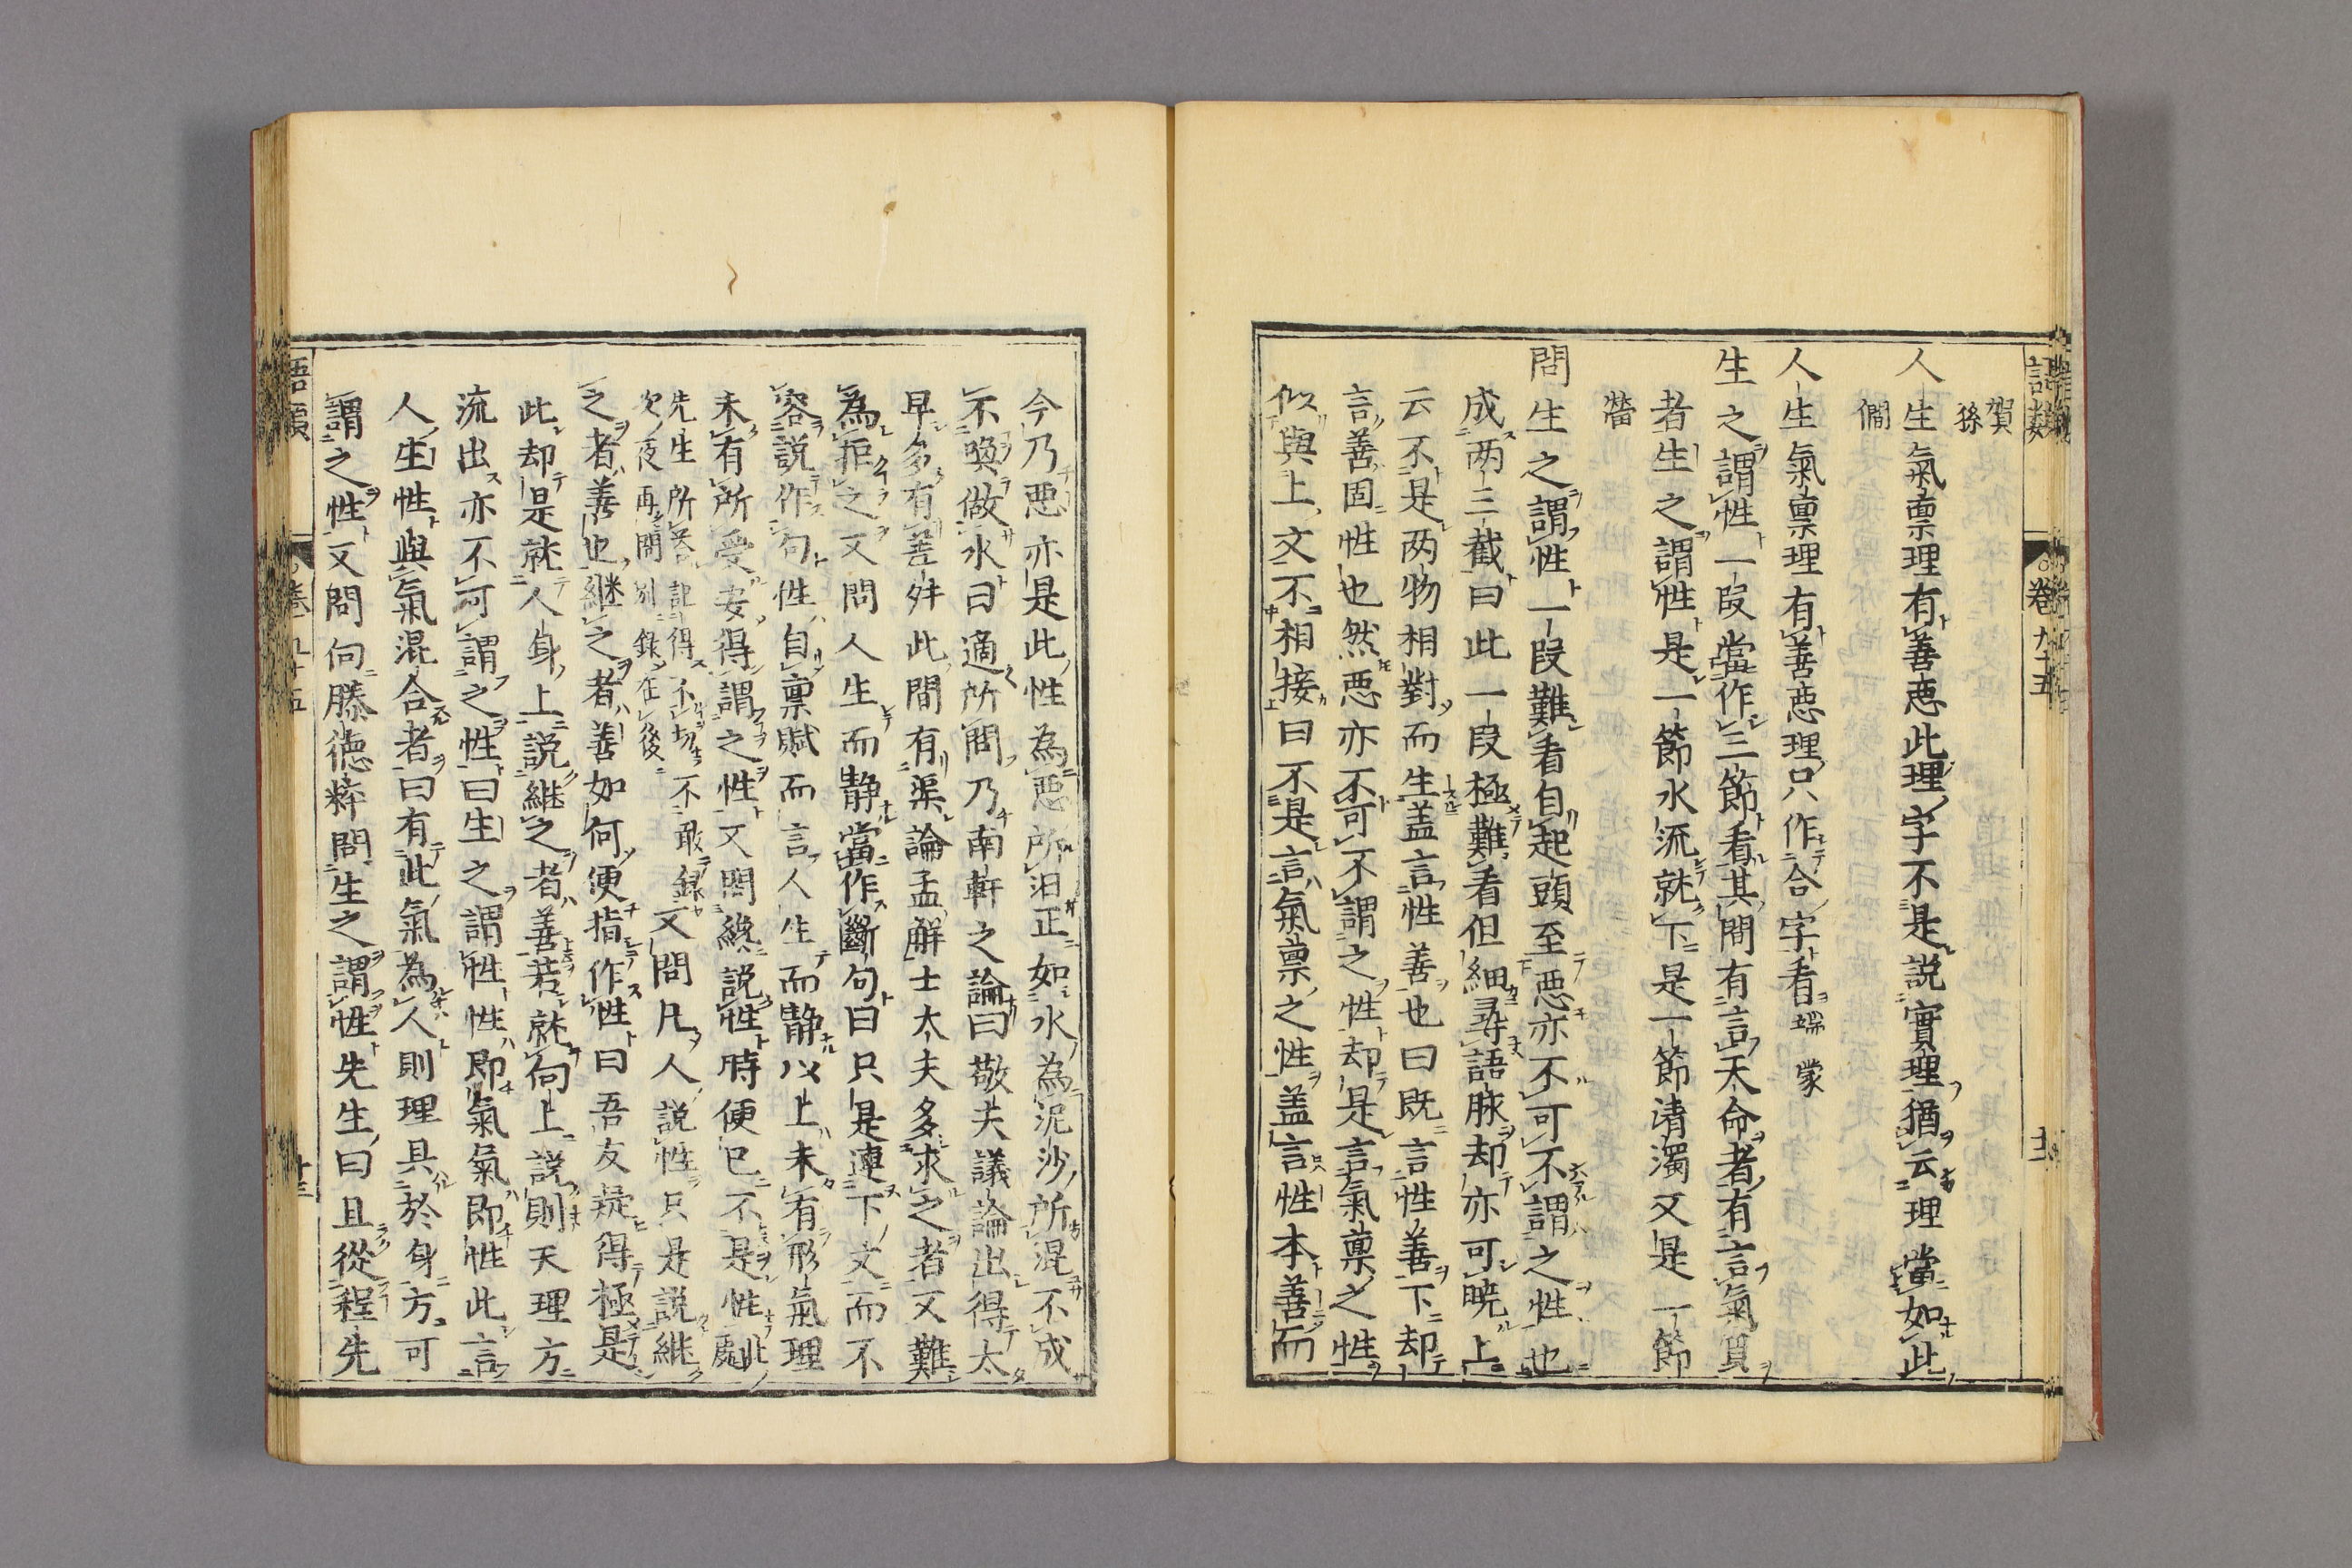 語類
卷九十五
賀孫
人生氣稟理有善惡此理字不是説實理猶云理當如此
僩
人生氣稟理有善惡理只作合字看端蒙
生之謂性一叚當作三節看其間有言天命者有言氣質
者生之謂性是一節水流就下是一節清濁又是一節
㽦
問生之謂性一叚難看自起頭至惡亦不可不謂之性也
成两三截曰此一叚極難看但細尋語脉却亦可曉上
云不是两物相對而生盖言性善也曰既言性善下却
言善固性也然惡亦不可不謂之性却是言氣稟之性
似與上文不相接曰不是言氣稟之性盖言性本善而
今乃惡亦是此性為惡所汩正如水為泥沙所混不成
不喚做水曰適所問乃南軒之論曰敬夫議論出得太
早多有差舛此間有渠論孟解士大夫多求之者又難
為拒之又問人生而静當作斷句曰只是連下文而不
容說作句性自稟賦而言人生而静以上未有形氣理
未有所受安得謂之性又問纔説性時便已不是性此處
先生所答記得不切不敢録
次夜再問別録在後
又問凡人說性只是説継
之者善也継之者善如何便指作性曰吾友疑得極是
此却是就人身上説継之者善若就向上説則天理方
流出亦不可謂之性曰生之謂性性即氣氣即性此言
人生性與氣混合者曰有此氣為人則理具於身方可
謂之性又問向滕德粹問生之謂性先生曰且從程先
語類
卷九十五
十三